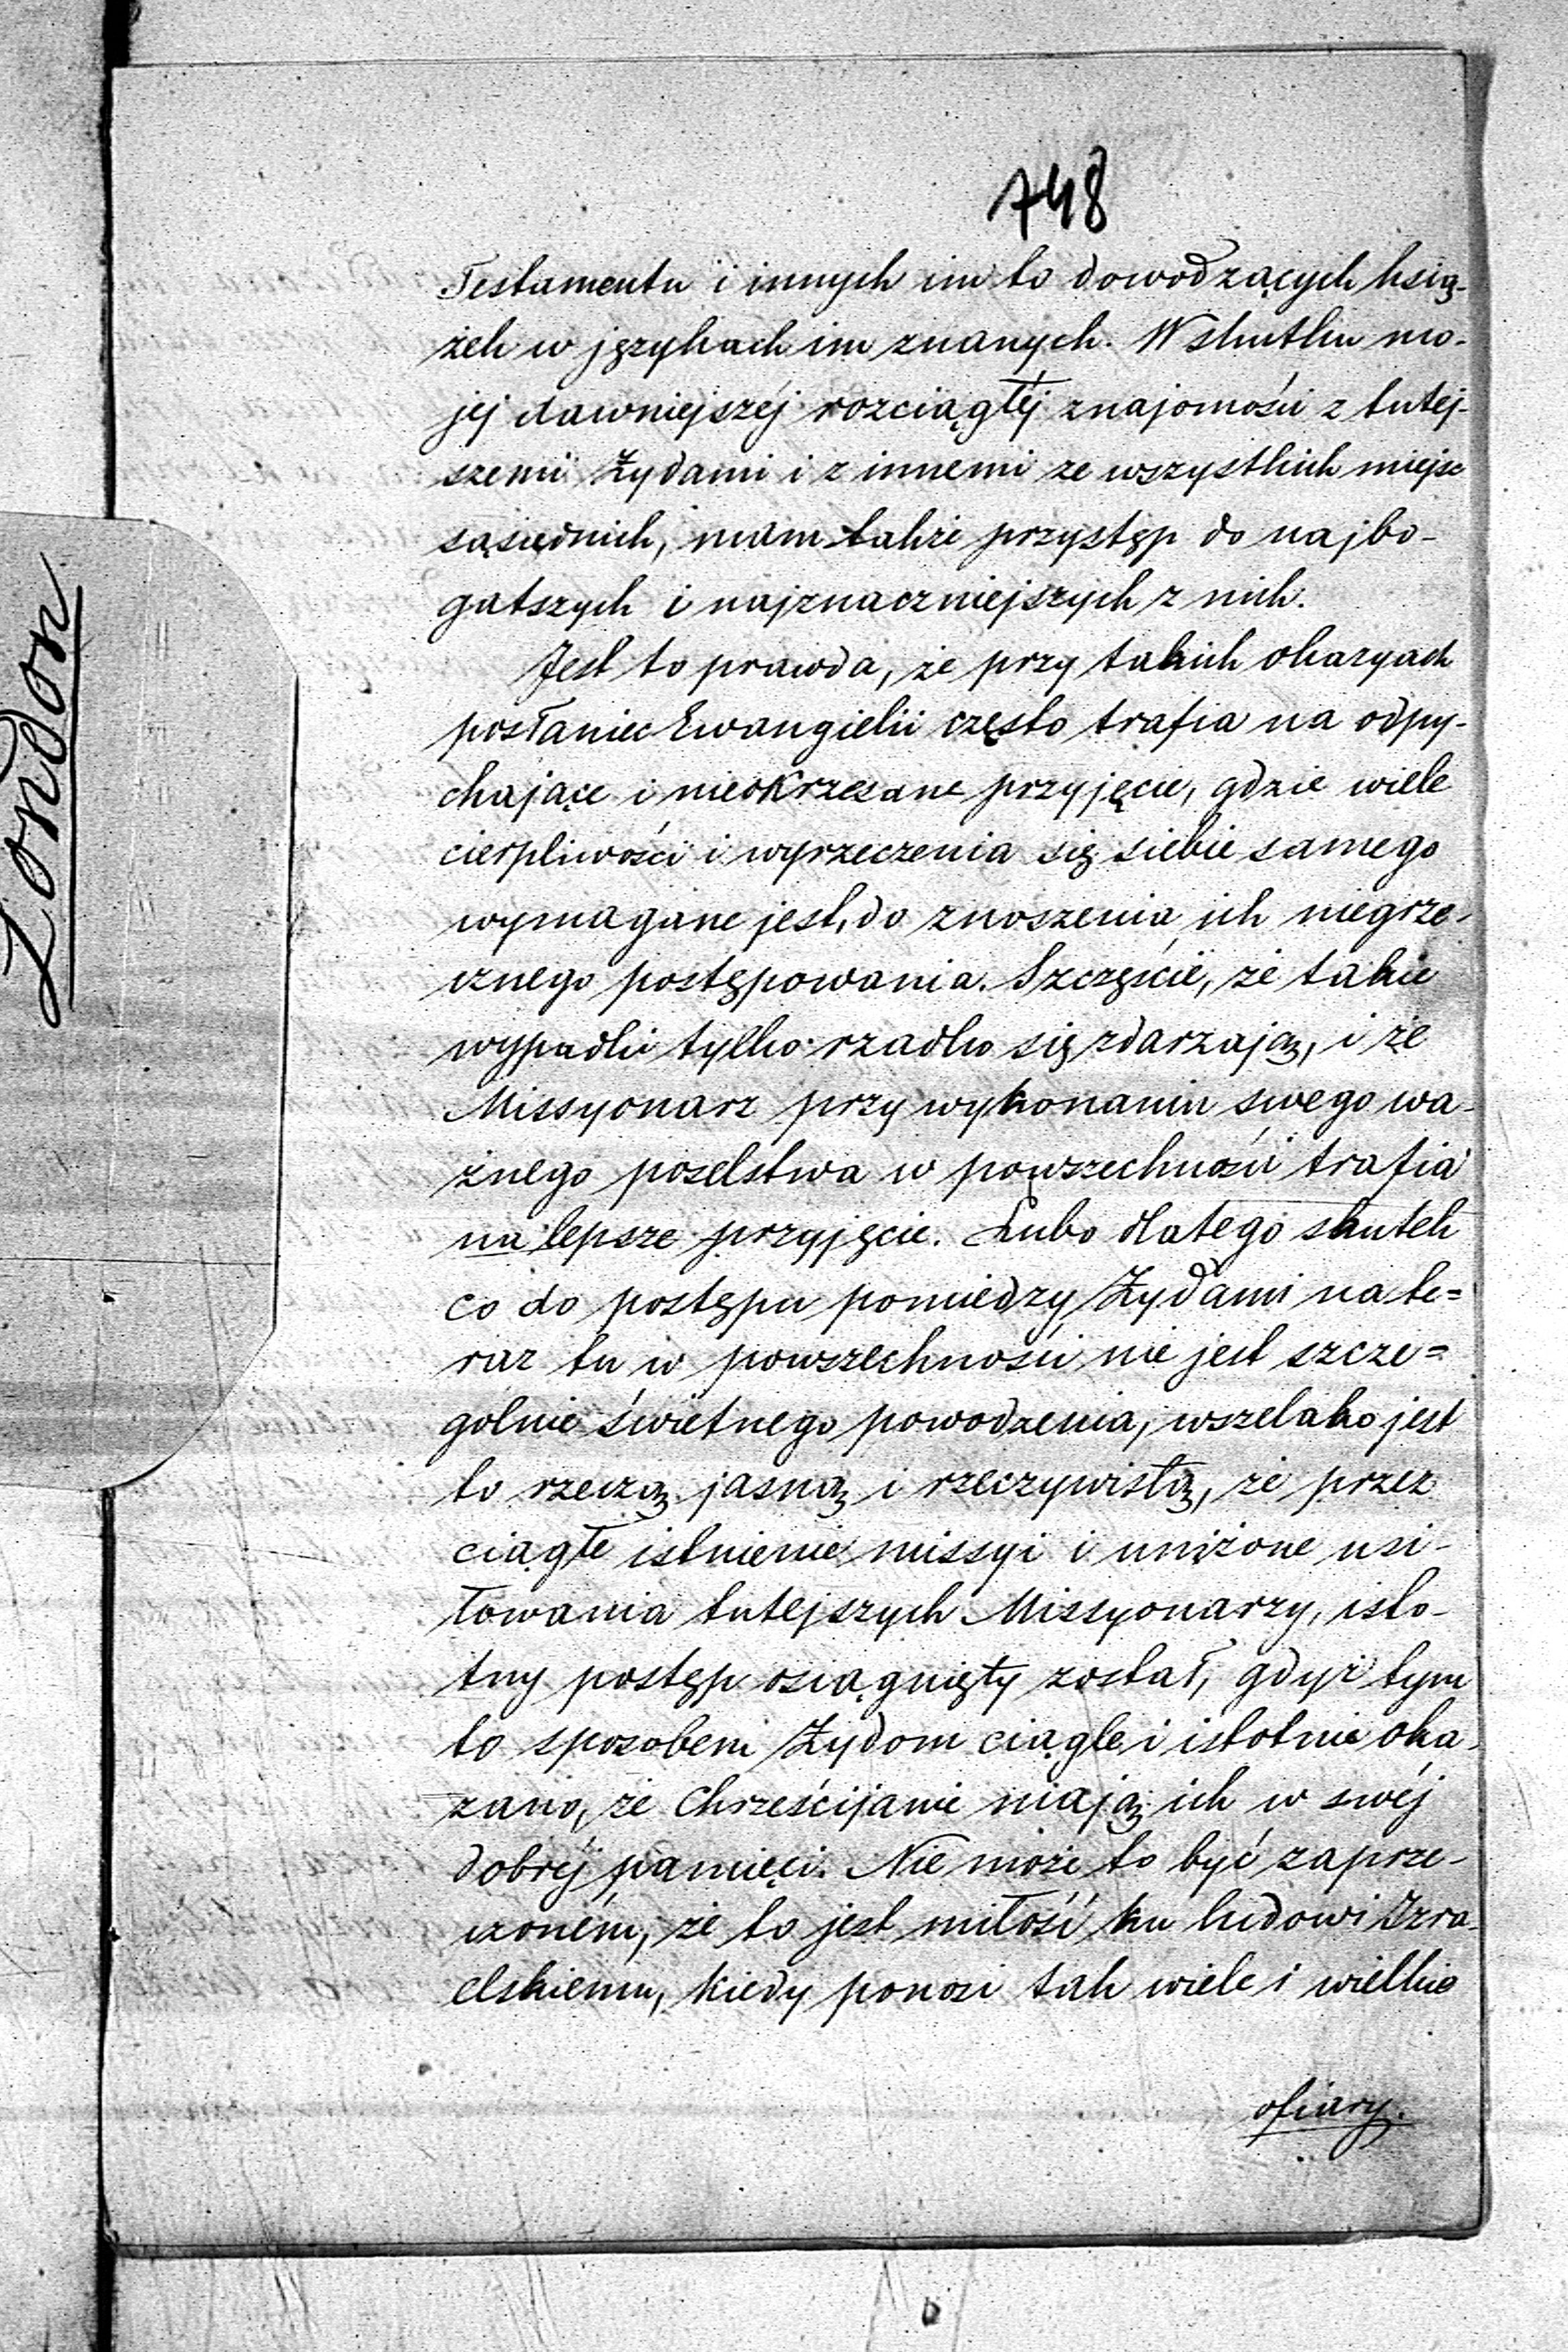 748
Testamentu i innych im to dowodzących ksią-
żek w językach im znanych. W skutku mo-
jej dawniejszéj rozciągłéj znajomości z tutej-
szemi Żydami i z innemi ze wszystkich miejsc
sąsiednich, mam także przystęp do najbo-
gatszych i najznaczniejszych z nich.
Jest to prawda, że przy takich okazyach
posłaniec Ewangielii często trafia na odpy-
chające i nieokrzesane przyjęcie, gdzie wiele
cierpliwości i wyrzeczenia się siebie samego
wymagane jest, do znoszenia ich niegrze-
cznego postępowania. Szczęście, że takie
wypadki tylko rzadko się zdarzają, i że
Missyonarz przy wykonaniu swego wa-
żnego poselstwa w powszechności trafia
na lepsze przyjęcie. Lubo dlatego skutek
co do postępu pomiedzy Żydami na te=
raz tu w powszechności nie jest szcze=
golnie świetnego powodzenia, wszelako jest
to rzeczą jasną i rzeczywistą, że przez
ciągłe istnienie missyi i uniżone usi-
łowania tutejszych Missyonarzy, isto-
tny postęp osiągnięty został, gdyż tym
to sposobem Żydom ciągle i istotnie oka-
zano, że Chrześcijanie mają ich w swéj
dobréj pamięci. Nie może to być zaprze-
czoném, że to jest miłość ku ludowi Izra-
elskiemu, kiedy ponosi tak wiele i wielkie
ofiary.
London